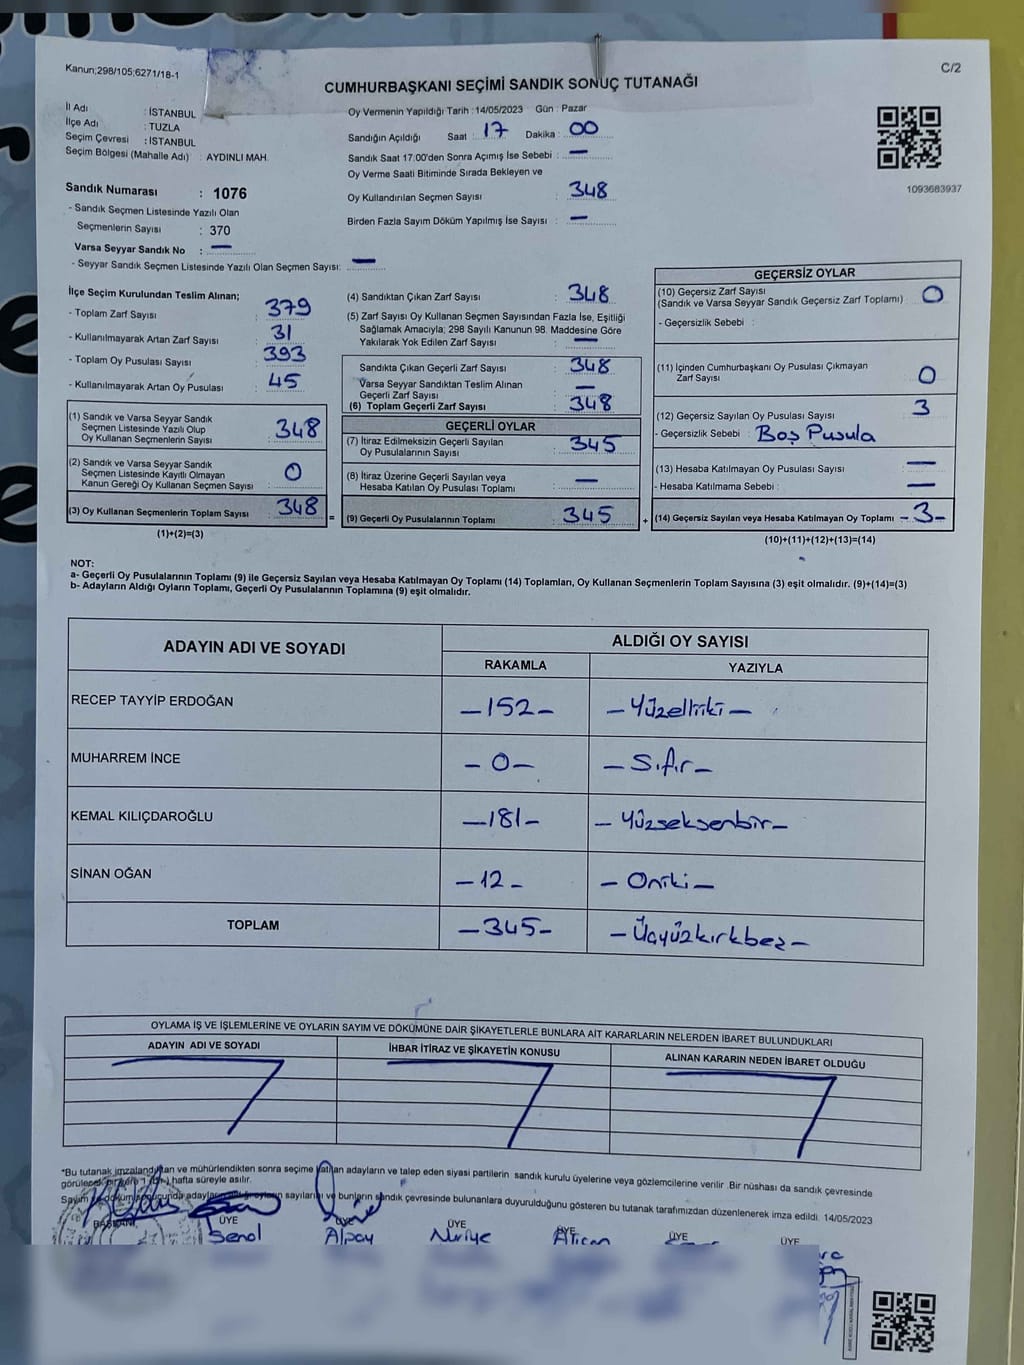 Kanun;298/105;6271/18-1
C/2
CUMHURBAŞKANI SEÇİMİ SANDIK SONUÇ TUTANAĞI
İl Adı : İSTANBUL
İlçe Adı : TUZLA
Seçim Çevresi : İSTANBUL
Seçim Bölgesi (Mahalle Adı) : AYDINLI MAH.
Sandık Numarası : 1076
- Sandık Seçmen Listesinde Yazılı Olan
Seçmenlerin Sayısı : 370
Varsa Seyyar Sandık No : —
- Seyyar Sandık Seçmen Listesinde Yazılı Olan Seçmen Sayısı: —
Oy Vermenin Yapıldığı Tarih : 14/05/2023 Gün : Pazar
Sandığın Açıldığı Saat : 17 Dakika : 00
Sandık Saat 17:00'den Sonra Açımış İse Sebebi : —
Oy Verme Saati Bitiminde Sırada Bekleyen ve
Oy Kullandırılan Seçmen Sayısı : 348
Birden Fazla Sayım Döküm Yapılmış İse Sayısı : —
1093683937
İlçe Seçim Kurulundan Teslim Alınan;
- Toplam Zarf Sayısı : 379
- Kullanılmayarak Artan Zarf Sayısı : 31
- Toplam Oy Pusulası Sayısı : 393
- Kullanılmayarak Artan Oy Pusulası : 45
(1) Sandık ve Varsa Seyyar Sandık
Seçmen Listesinde Yazılı Olup
Oy Kullanan Seçmenlerin Sayısı : 348
(2) Sandık ve Varsa Seyyar Sandık
Seçmen Listesinde Kayıtlı Olmayan
Kanun Gereği Oy Kullanan Seçmen Sayısı : 0
(3) Oy Kullanan Seçmenlerin Toplam Sayısı : 348
(1)+(2)=(3)
=
(4) Sandıktan Çıkan Zarf Sayısı : 348
(5) Zarf Sayısı Oy Kullanan Seçmen Sayısından Fazla İse, Eşitliği
Sağlamak Amacıyla; 298 Sayılı Kanunun 98. Maddesine Göre
Yakılarak Yok Edilen Zarf Sayısı : —
Sandıkta Çıkan Geçerli Zarf Sayısı : 348
Varsa Seyyar Sandıktan Teslim Alınan
Geçerli Zarf Sayısı : —
(6) Toplam Geçerli Zarf Sayısı : 348
GEÇERLİ OYLAR
(7) İtiraz Edilmeksizin Geçerli Sayılan
Oy Pusulalarının Sayısı : 345
(8) İtiraz Üzerine Geçerli Sayılan veya
Hesaba Katılan Oy Pusulası Toplamı : —
(9) Geçerli Oy Pusulalarının Toplamı : 345
+
GEÇERSİZ OYLAR
(10) Geçersiz Zarf Sayısı :
(Sandık ve Varsa Seyyar Sandık Geçersiz Zarf Toplamı) 0
- Geçersizlik Sebebi :
(11) İçinden Cumhurbaşkanı Oy Pusulası Çıkmayan
Zarf Sayısı : 0
(12) Geçersiz Sayılan Oy Pusulası Sayısı : 3
- Geçersizlik Sebebi : Boş Pusula
(13) Hesaba Katılmayan Oy Pusulası Sayısı : —
- Hesaba Katılmama Sebebi : —
(14) Geçersiz Sayılan veya Hesaba Katılmayan Oy Toplamı -3-
(10)+(11)+(12)+(13)=(14)
NOT:
a- Geçerli Oy Pusulalarının Toplamı (9) ile Geçersiz Sayılan veya Hesaba Katılmayan Oy Toplamı (14) Toplamları, Oy Kullanan Seçmenlerin Toplam Sayısına (3) eşit olmalıdır. (9)+(14)=(3)
b- Adayların Aldığı Oyların Toplamı, Geçerli Oy Pusulalarının Toplamına (9) eşit olmalıdır.
ADAYIN ADI VE SOYADI
ALDIĞI OY SAYISI
RAKAMLA YAZIYLA
RECEP TAYYİP ERDOĞAN -152- -Yüzelliiki-
MUHARREM İNCE -0- -Sıfır-
KEMAL KILIÇDAROĞLU -181- -Yüzseksenbir-
SİNAN OĞAN -12- -Oniki-
TOPLAM -345- -Üçyüzkırkbeş-
OYLAMA İŞ VE İŞLEMLERİNE VE OYLARIN SAYIM VE DÖKÜMÜNE DAİR ŞİKAYETLERLE BUNLARA AİT KARARLARIN NELERDEN İBARET BULUNDUKLARI
ADAYIN ADI VE SOYADI İHBAR İTİRAZ VE ŞİKAYETİN KONUSU ALINAN KARARIN NEDEN İBARET OLDUĞU
*Bu tutanak imzalandıktan ve mühürlendikten sonra seçime katılan adayların ve talep eden siyasi partilerin sandık kurulu üyelerine veya gözlemcilerine verilir .Bir nüshası da sandık çevresinde
görülecek bir yere 1 (Bir) hafta süreyle asılır.
Sayım ve döküm sonucunda adayların aldığı oyların sayılarını ve bunların sandık çevresinde bulunanlara duyurulduğunu gösteren bu tutanak tarafımızdan düzenlenerek imza edildi. 14/05/2023
BAŞKAN ÜYE ÜYE ÜYE ÜYE ÜYE ÜYE
Şenol Alpay Nuriye